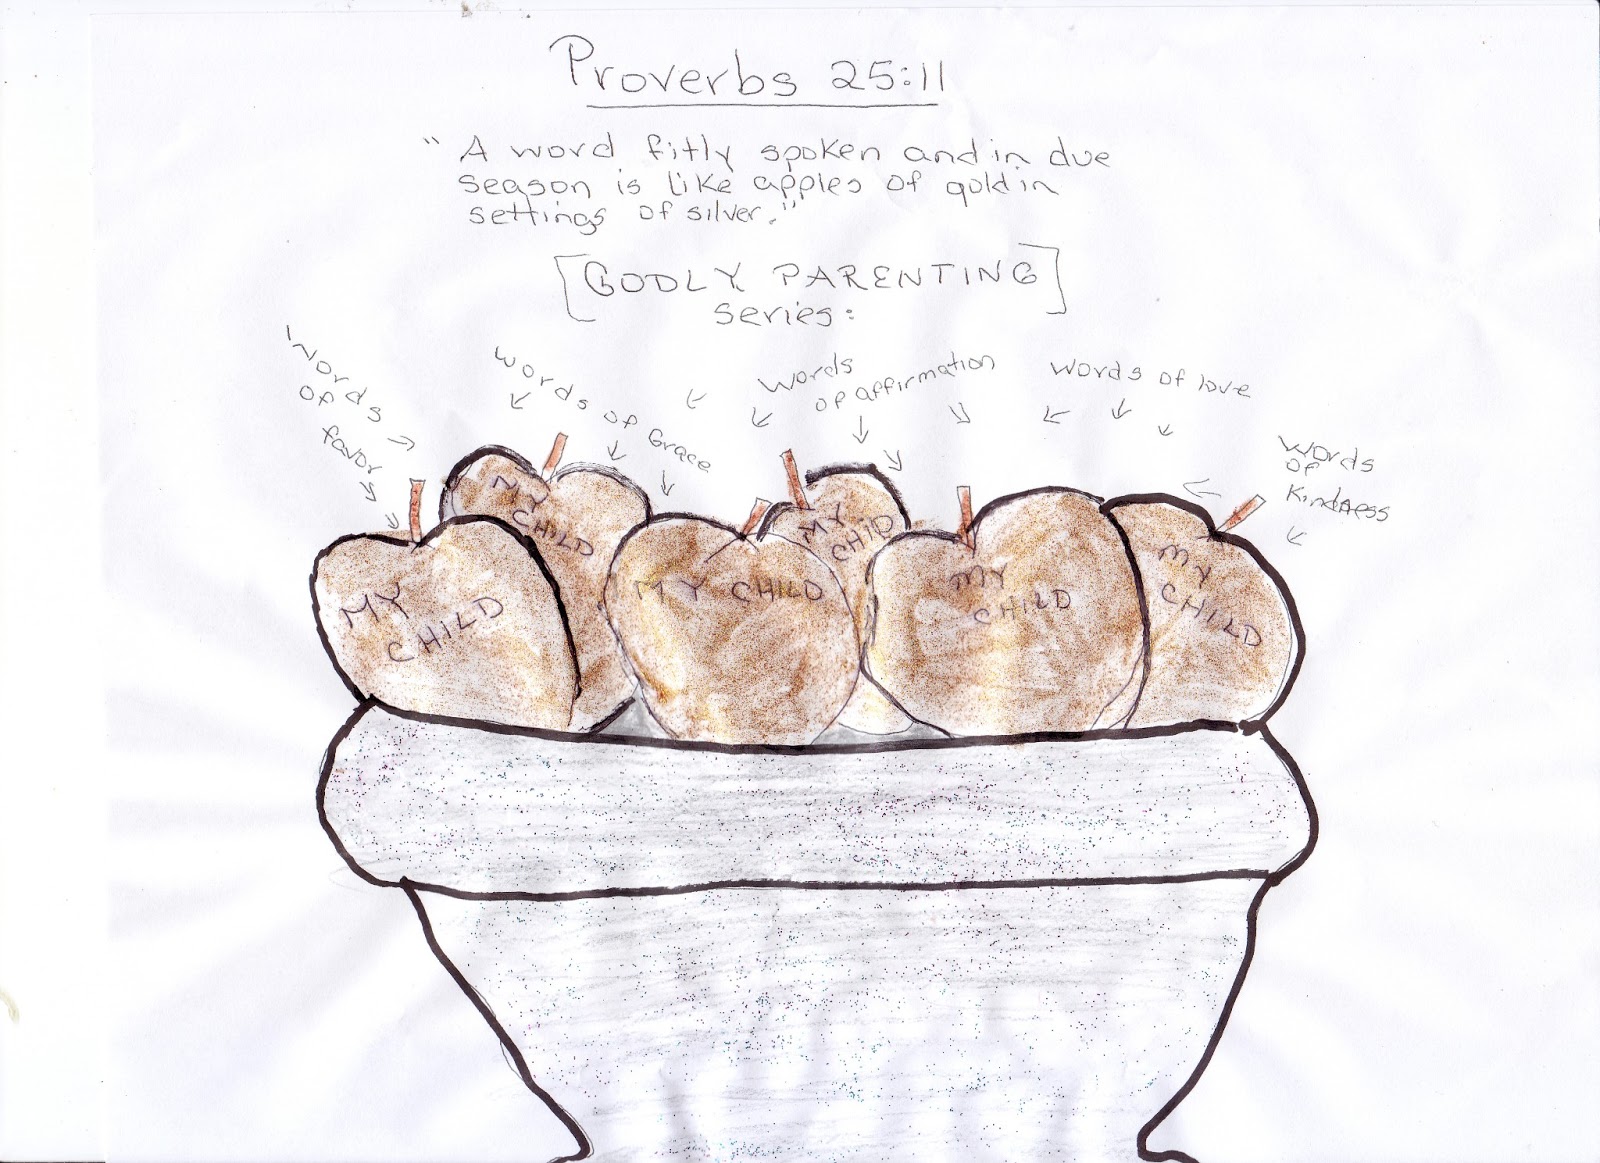 Proverbs 25:11
"A word fitly spoken and in due
season is like apples of gold in
settings of silver."
[GODLY PARENTING]
series:
Words
of
favor
words of Grace
words
of affirmation
words of love
words
of
kindness
MY
CHILD
MY
CHILD
MY CHILD
MY
CHILD
MY
CHILD
MY
CHILD